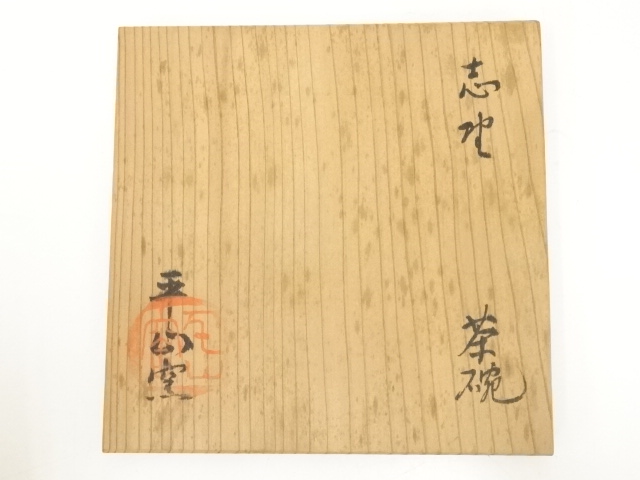 志野
茶碗
平山窯